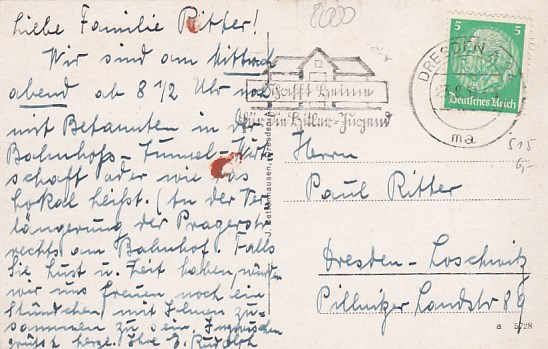 Liebe Familie Ritter!
Wir sind am Mittwoch
abend ab 8 1/2 Uhr noch
mit Bekannten in der
Bahnhofs-Tunnel-Wirt-
schaft oder wie das
Lokal heißt. (In der Ver-
längerung der Pragerstr.
rechts am Bahnhof. Falls
Sie Lust u. Zeit haben, würden
wir uns freuen noch ein
Stündchen mit Ihnen zu-
sammen zu sein. Inzwischen
grüsst herzl. Ihre E. Rudolph
8000
DRESDEN
Schafft Heime
für die Hitler-Jugend
5 5
Deutsches Reich
ma
515
6,-
Herrn
Paul Ritter
Dresden-Loschwitz
Pillnitzer Landstr 89
a 5728